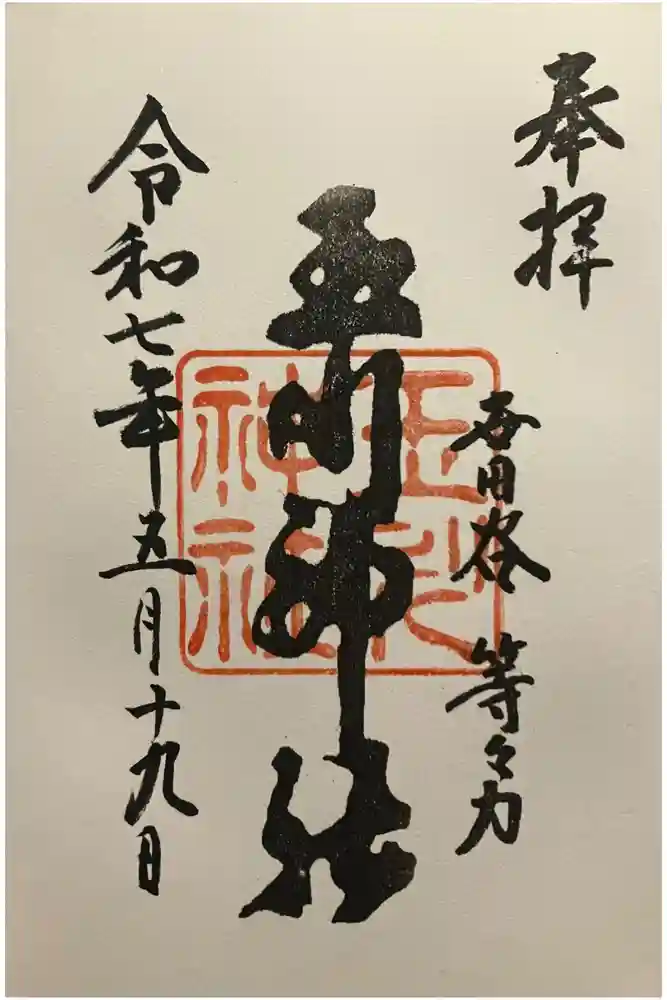 奉拝
世田谷 等々力
玉川神社
玉川神社
令和七年五月十九日